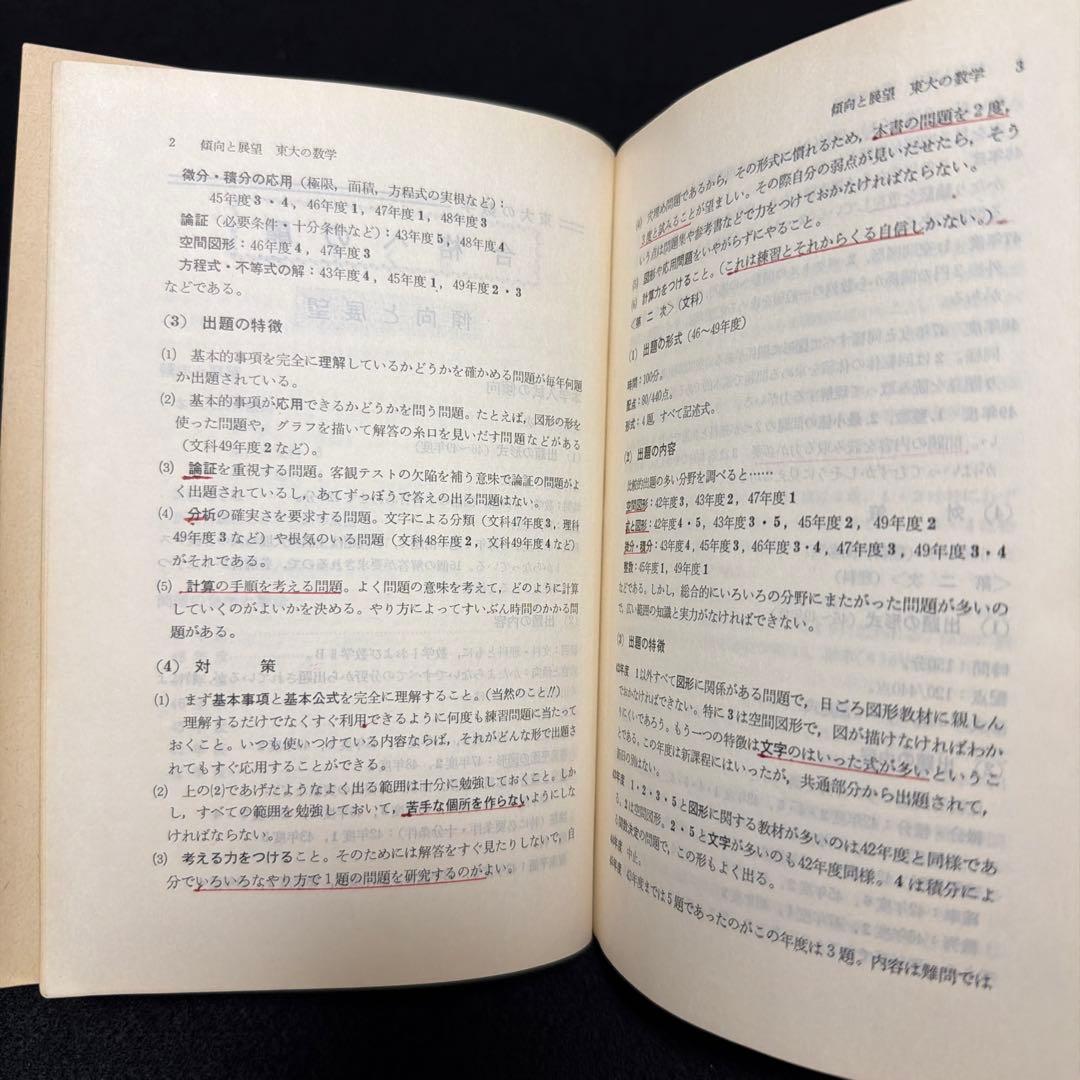 2 傾向と展望 東大の数学
微分・積分の応用（極限，面積，方程式の実根など）：
45年度3・4，46年度1，47年度1，48年度3
論証（必要条件・十分条件など）：43年度5，48年度4
空間図形：46年度4，47年度3
方程式・不等式の解：43年度4，45年度1，49年度2・3
などである。
(3) 出題の特徴
(1) 基本的事項を完全に理解しているかどうかを確かめる問題が毎年何題
か出題されている。
(2) 基本的事項が応用できるかどうかを問う問題。たとえば，図形の形を
使った問題や，グラフを描いて解答の糸口を見いだす問題などがある
（文科49年度2など）。
(3) 論証を重視する問題。客観テストの欠陥を補う意味で論証の問題がよ
く出題されているし，あてずっぽうで答えの出る問題はない。
(4) 分析の確実さを要求する問題。文字による分類（文科47年度3，理科
49年度3など）や根気のいる問題（文科48年度2，文科49年度4など）
がそれである。
(5) 計算の手順を考える問題。よく問題の意味を考えて，どのように計算
していくのがよいかを決める。やり方によってずいぶん時間のかかる問
題がある。
(4) 対 策
(1) まず基本事項と基本公式を完全に理解すること。（当然のこと!!）
理解するだけでなくすぐ利用できるように何度も練習問題に当たって
おくこと。いつも使いつけている内容ならば，それがどんな形で出題さ
れてもすぐ応用することができる。
(2) 上の(2)であげたようなよく出る範囲は十分に勉強しておくこと。しか
し，すべての範囲を勉強しておいて，苦手な個所を作らないようにしな
ければならない。
(3) 考える力をつけること。そのためには解答をすぐ見たりしないで，自
分でいろいろなやり方で1題の問題を研究するのがよい。
傾向と展望 東大の数学 3
(4) 穴埋め問題であるから，その形式に慣れるため，本書の問題を2度，
3度と試みることが望ましい。その際自分の弱点が見いだせたら，そう
いう点は問題集や参考書などで力をつけておかなければならない。
(5) 図形や応用問題をいやがらずにやること。
(6) 計算力をつけること。（これは練習とそれからくる自信しかない。）
〈第 二 次〉（文科）
(1) 出題の形式（46～49年度）
時間：100分。
配点：80/440点。
形式：4題，すべて記述式。
(2) 出題の内容
比較的出題の多い分野を調べると……
空間図形：42年度3，43年度2，47年度1
式と図形：42年度4・5，43年度3・5，45年度2，49年度2
微分・積分：43年度4，45年度3，46年度3・4，47年度3，49年度3・4
整数：45年度1，49年度1
などである。しかし，総合的にいろいろの分野にまたがった問題が多いの
で，広い範囲の知識と実力がなければできない。
(3) 出題の特徴
42年度 1以外すべて図形に関係がある問題で，日ごろ図形教材に親しん
でおかなければできない。特に3は空間図形で，図が描けなければわか
りにくいであろう。もう一つの特徴は文字のはいった式が多いというこ
とである。この年度は新課程にはいったが，共通部分から出題されて，
新旧の別はない。
43年度 1・2・3・5と図形に関する教材が多いのは42年度と同様であ
る。2は空間図形。2・5と文字が多いのも42年度同様。4は積分によ
る関数決定の問題で，この形もよく出る。
44年度 中止。
45年度 43年度までは5題であったのがこの年度は3題。内容は難問では